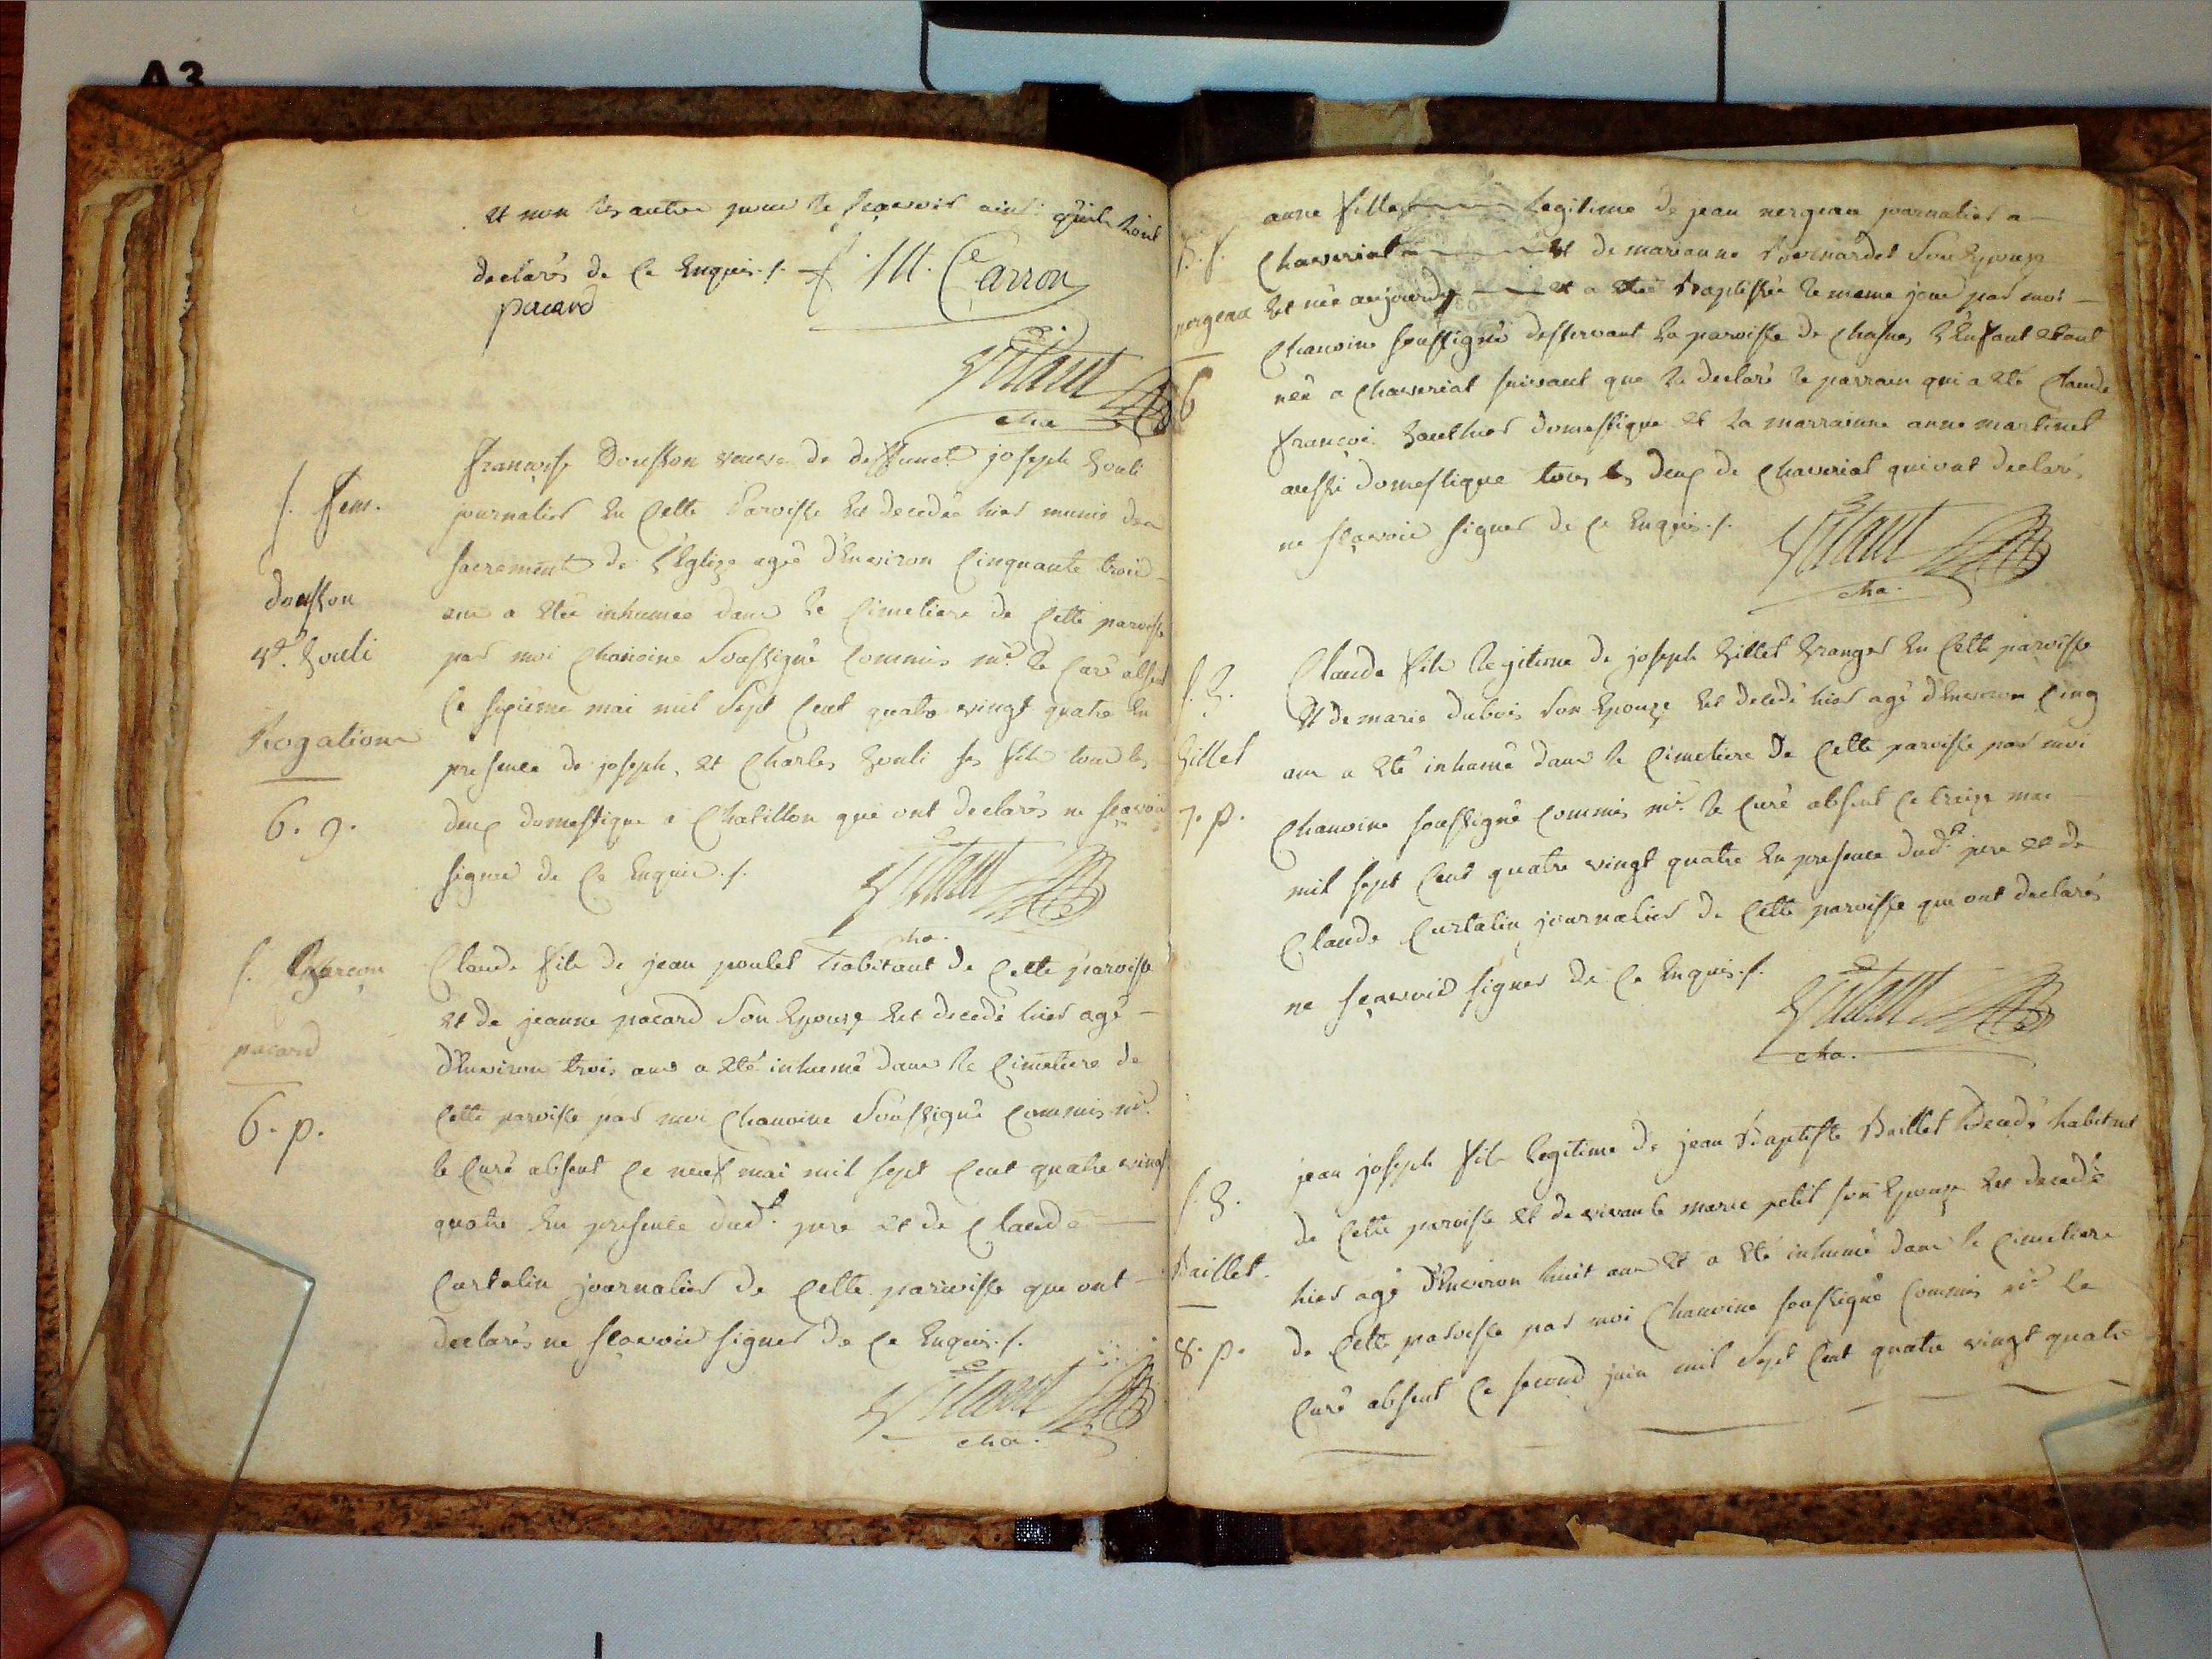 A3
et non les autres pour ne sçavoir ainsi qu'ils l'ont
declarés de ce enquis ./. M. Carron
pacard
Vitaut
cha
s. fem.
dousson
vᵉ. Gouli
Rogations
6. g.
françoise Dousson veuve de deffunct joseph Gouli
journalier en cette Paroisse est decedée hier munie des
sacrements de l'Eglize agée d'Environ Cinquante trois
ans a étée inhumée dans le Cimetiere de Cette paroisse
par moi Chanoine Soussigné Commis mʳ. le Curé absent
Ce sixieme mai mil Sept Cent quatre vingt quatre En
presence de joseph, et Charles Gouli ses fils tous les
deux domestique a Chatillon qui ont declarés ne sçavoir
signer de Ce Enquis ./.
Vitaut
cha.
s. garçon
pacard
6. p.
Claude fils de jean poulet habitant de Cette paroisse
et de jeanne pacard Son Epouze est decedé hier agé
d'Environ trois ans a eté inhumé dans le Cimetiere de
Cette paroisse par moi Chanoine Soussigné Commis mʳ.
le Curé absent Ce neuf mai mil sept Cent quatre vingt
quatre En presence dudᵗ. pere et de Claude
Curtalin journalier de Cette paroisse qui ont
declarés ne sçavoir signer de Ce Enquis ./.
Vitaut
cha.
B. f.
nergeau
6
anne fille legitime de jean nergeau journalier a
Chaveriat et de marianne Bernardet Son Epouze
Est née aujourdy et a etée Baptissée le meme jour par moi
Chanoine soussigné desservant la paroisse de Chasnes l'Enfant etant
née a Chaveriat suivant que l'a declaré le parrain qui a eté Claude
françoi Gauthier domestique et la marrainne anne martinet
aussi domestique tous les deux de Chaveriat qui ont declarés
ne sçavoir signer de Ce Enquis ./.
Vitaut
cha.
s. G.
Gillet
7. p.
Claude fils legitime de joseph Gillet Granger En Cette paroisse
Et de marie dubois Son Epouze est decedé hier agé d'Environ Cinq
ans a eté inhumé dans le Cimetiere de Cette paroisse par moi
Chanoine soussigné Commis mʳ. le Curé absent Ce treize mai
mil sept Cent quatre vingt quatre En presence dudᵗ. pere et de
Claude Curtalin journalier de Cette paroisse qui ont declarés
ne sçavoir signer de Ce Enquis ./.
Vitaut
cha.
s. G.
Baillet.
8. p.
jean joseph fils legitime de jean Baptiste Baillet decedé habitant
de Cette paroisse et de vivante marie petit son Epouze est decedé
hier agé d'Environ huit ans et a eté inhumé dans le Cimetiere
de Cette paroisse par moi Chanoine soussigné Commis mʳ le
Curé absent Ce second juin mil Sept Cent quatre vingt quatre